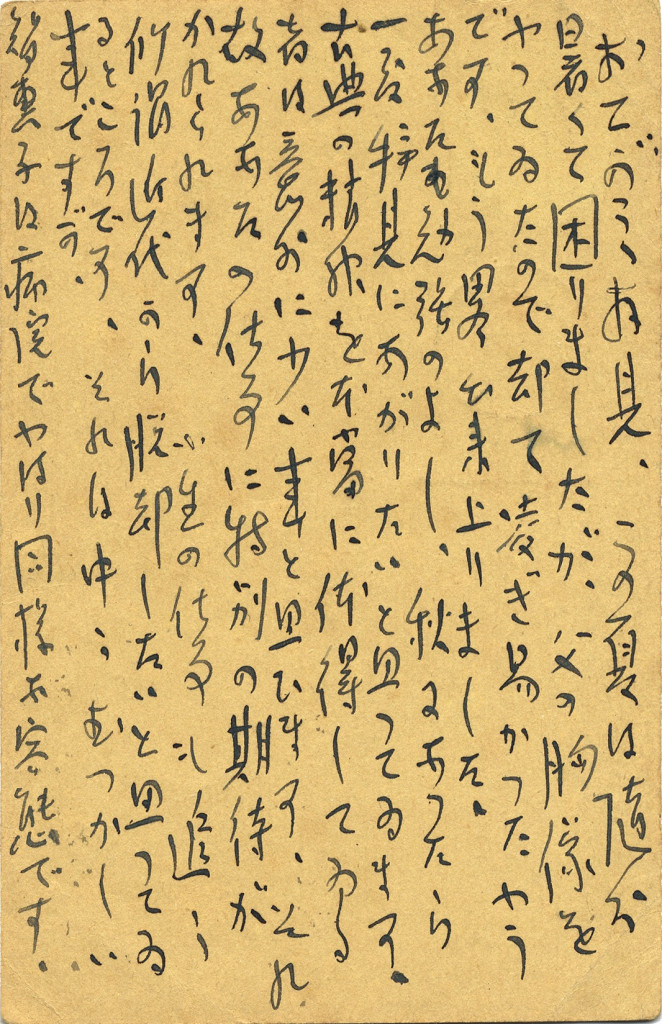 おてがみ拝見、この夏は随分
暑くて困りましたが、父の胸像を
やつてゐたので却て凌ぎ易かつたやう
です、もう略出来上りました。
あなたも勉強のよし、秋にあつたら
一度拝見にあがりたいと思つてゐます。
古典の精神を本当に体得してゐる
者は意外に少い事と思ひます、それ
故あなたの仕事に特別の期待が
かけられます、小生の仕事も追々
所謂近代から脱却したいと思つてゐ
るところです、それは中々むつかしい
事ですが。
智恵子は病院でやはり同様な容態です。